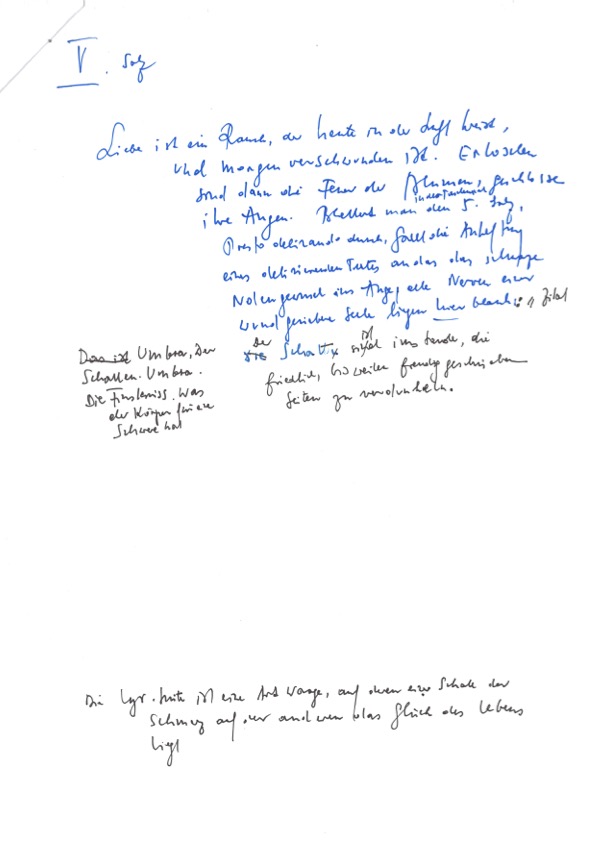 V. Satz
Liebe ist ein Rauch, der heute in der Luft
und morgen verschwunden ist. Erloschen
sind dann die Feuer der Blumen, geschlossen
ihre Augen. man den 5. Satz,
Presto delirando durch, fällt die Anheftung
eines delirierenden Textes an das das
Notengewusel ins Auge, alle Nerven einer
wund geriebenen Seele liegen hier blank : 1 Zitat
Das ist Umbra, Der
Schatten. Umbra.
Die Finsterniss. Was
der Körper für eine
Schwere hat
der
die Schatten ist im stande, die
friedlich, bisweilen freudig geschriebenen
Seiten zu verdunkeln.
Die Lyr. Suite ist eine Art Waage, auf deren einer Schale der
Schmerz auf der anderen das Glück des Lebens
liegt